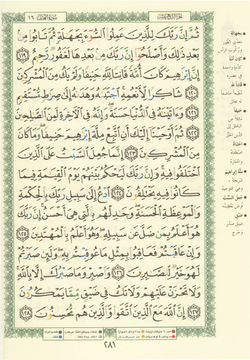 ثُمَّ إِنَّ رَبَّكَ لِلَّذِينَ عَمِلُوا۟ ٱلسُّوٓءَ بِجَهَٰلَةٍ ثُمَّ تَابُوا۟ مِنۢ
بَعْدِ ذَٰلِكَ وَأَصْلَحُوٓا۟ إِنَّ رَبَّكَ مِنۢ بَعْدِهَا لَغَفُورٌ رَّحِيمٌ ١١٩
إِنَّ إِبْرَٰهِيمَ كَانَ أُمَّةً قَانِتًا لِّلَّهِ حَنِيفًا وَلَمْ يَكُ مِنَ ٱلْمُشْرِكِينَ ١٢٠
شَاكِرًا لِّأَنْعُمِهِ ٱجْتَبَىٰهُ وَهَدَىٰهُ إِلَىٰ صِرَٰطٍ مُّسْتَقِيمٍ ١٢١
وَءَاتَيْنَٰهُ فِى ٱلدُّنْيَا حَسَنَةً وَإِنَّهُۥ فِى ٱلْءَاخِرَةِ لَمِنَ ٱلصَّٰلِحِينَ ١٢٢
ثُمَّ أَوْحَيْنَآ إِلَيْكَ أَنِ ٱتَّبِعْ مِلَّةَ إِبْرَٰهِيمَ حَنِيفًا وَمَا كَانَ
مِنَ ٱلْمُشْرِكِينَ ١٢٣ إِنَّمَا جُعِلَ ٱلسَّبْتُ عَلَى ٱلَّذِينَ
ٱخْتَلَفُوا۟ فِيهِ وَإِنَّ رَبَّكَ لَيَحْكُمُ بَيْنَهُمْ يَوْمَ ٱلْقِيَٰمَةِ فِيمَا
كَانُوا۟ فِيهِ يَخْتَلِفُونَ ١٢٤ ٱدْعُ إِلَىٰ سَبِيلِ رَبِّكَ بِٱلْحِكْمَةِ
وَٱلْمَوْعِظَةِ ٱلْحَسَنَةِ وَجَٰدِلْهُم بِٱلَّتِى هِىَ أَحْسَنُ إِنَّ رَبَّكَ
هُوَ أَعْلَمُ بِمَن ضَلَّ عَن سَبِيلِهِۦ وَهُوَ أَعْلَمُ بِٱلْمُهْتَدِينَ ١٢٥
وَإِنْ عَاقَبْتُمْ فَعَاقِبُوا۟ بِمِثْلِ مَا عُوقِبْتُم بِهِۦ وَلَئِن صَبَرْتُمْ
لَهُوَ خَيْرٌ لِّلصَّٰبِرِينَ ١٢٦ وَٱصْبِرْ وَمَا صَبْرُكَ إِلَّا بِٱللَّهِ
وَلَا تَحْزَنْ عَلَيْهِمْ وَلَا تَكُ فِى ضَيْقٍ مِّمَّا يَمْكُرُونَ ١٢٧
إِنَّ ٱللَّهَ مَعَ ٱلَّذِينَ ٱتَّقَوا۟ وَّٱلَّذِينَ هُم مُّحْسِنُونَ ١٢٨
٢٨١